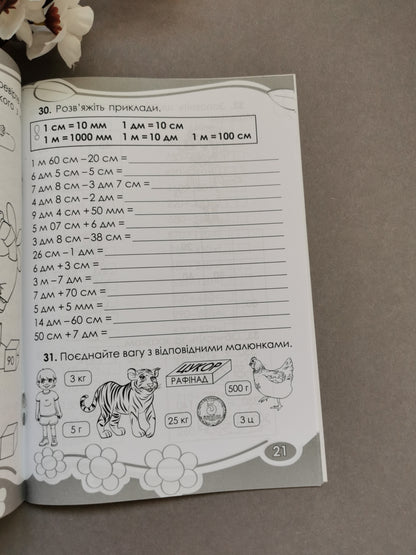 30. Розв'яжіть приклади.
1 см = 10 мм 1 дм = 10 см
1 м = 1000 мм 1 м = 10 дм 1 м = 100 см
1 м 60 см – 20 см =
6 дм 5 см – 5 см =
7 дм 8 см – 3 дм 7 см =
4 дм 8 см – 2 дм =
9 дм 4 см + 50 мм =
5 м 07 см + 6 дм =
3 дм 8 см – 38 см =
26 см – 1 дм =
6 дм + 3 см =
3 м – 7 дм =
7 дм + 70 см =
5 дм + 5 мм =
14 дм – 60 см =
50 см + 7 дм =
31. Поєднайте вагу з відповідними малюнками.
3 кг
ЦУКОР
РАФІНАД
500 г
5 г
25 кг
3 ц
21
90